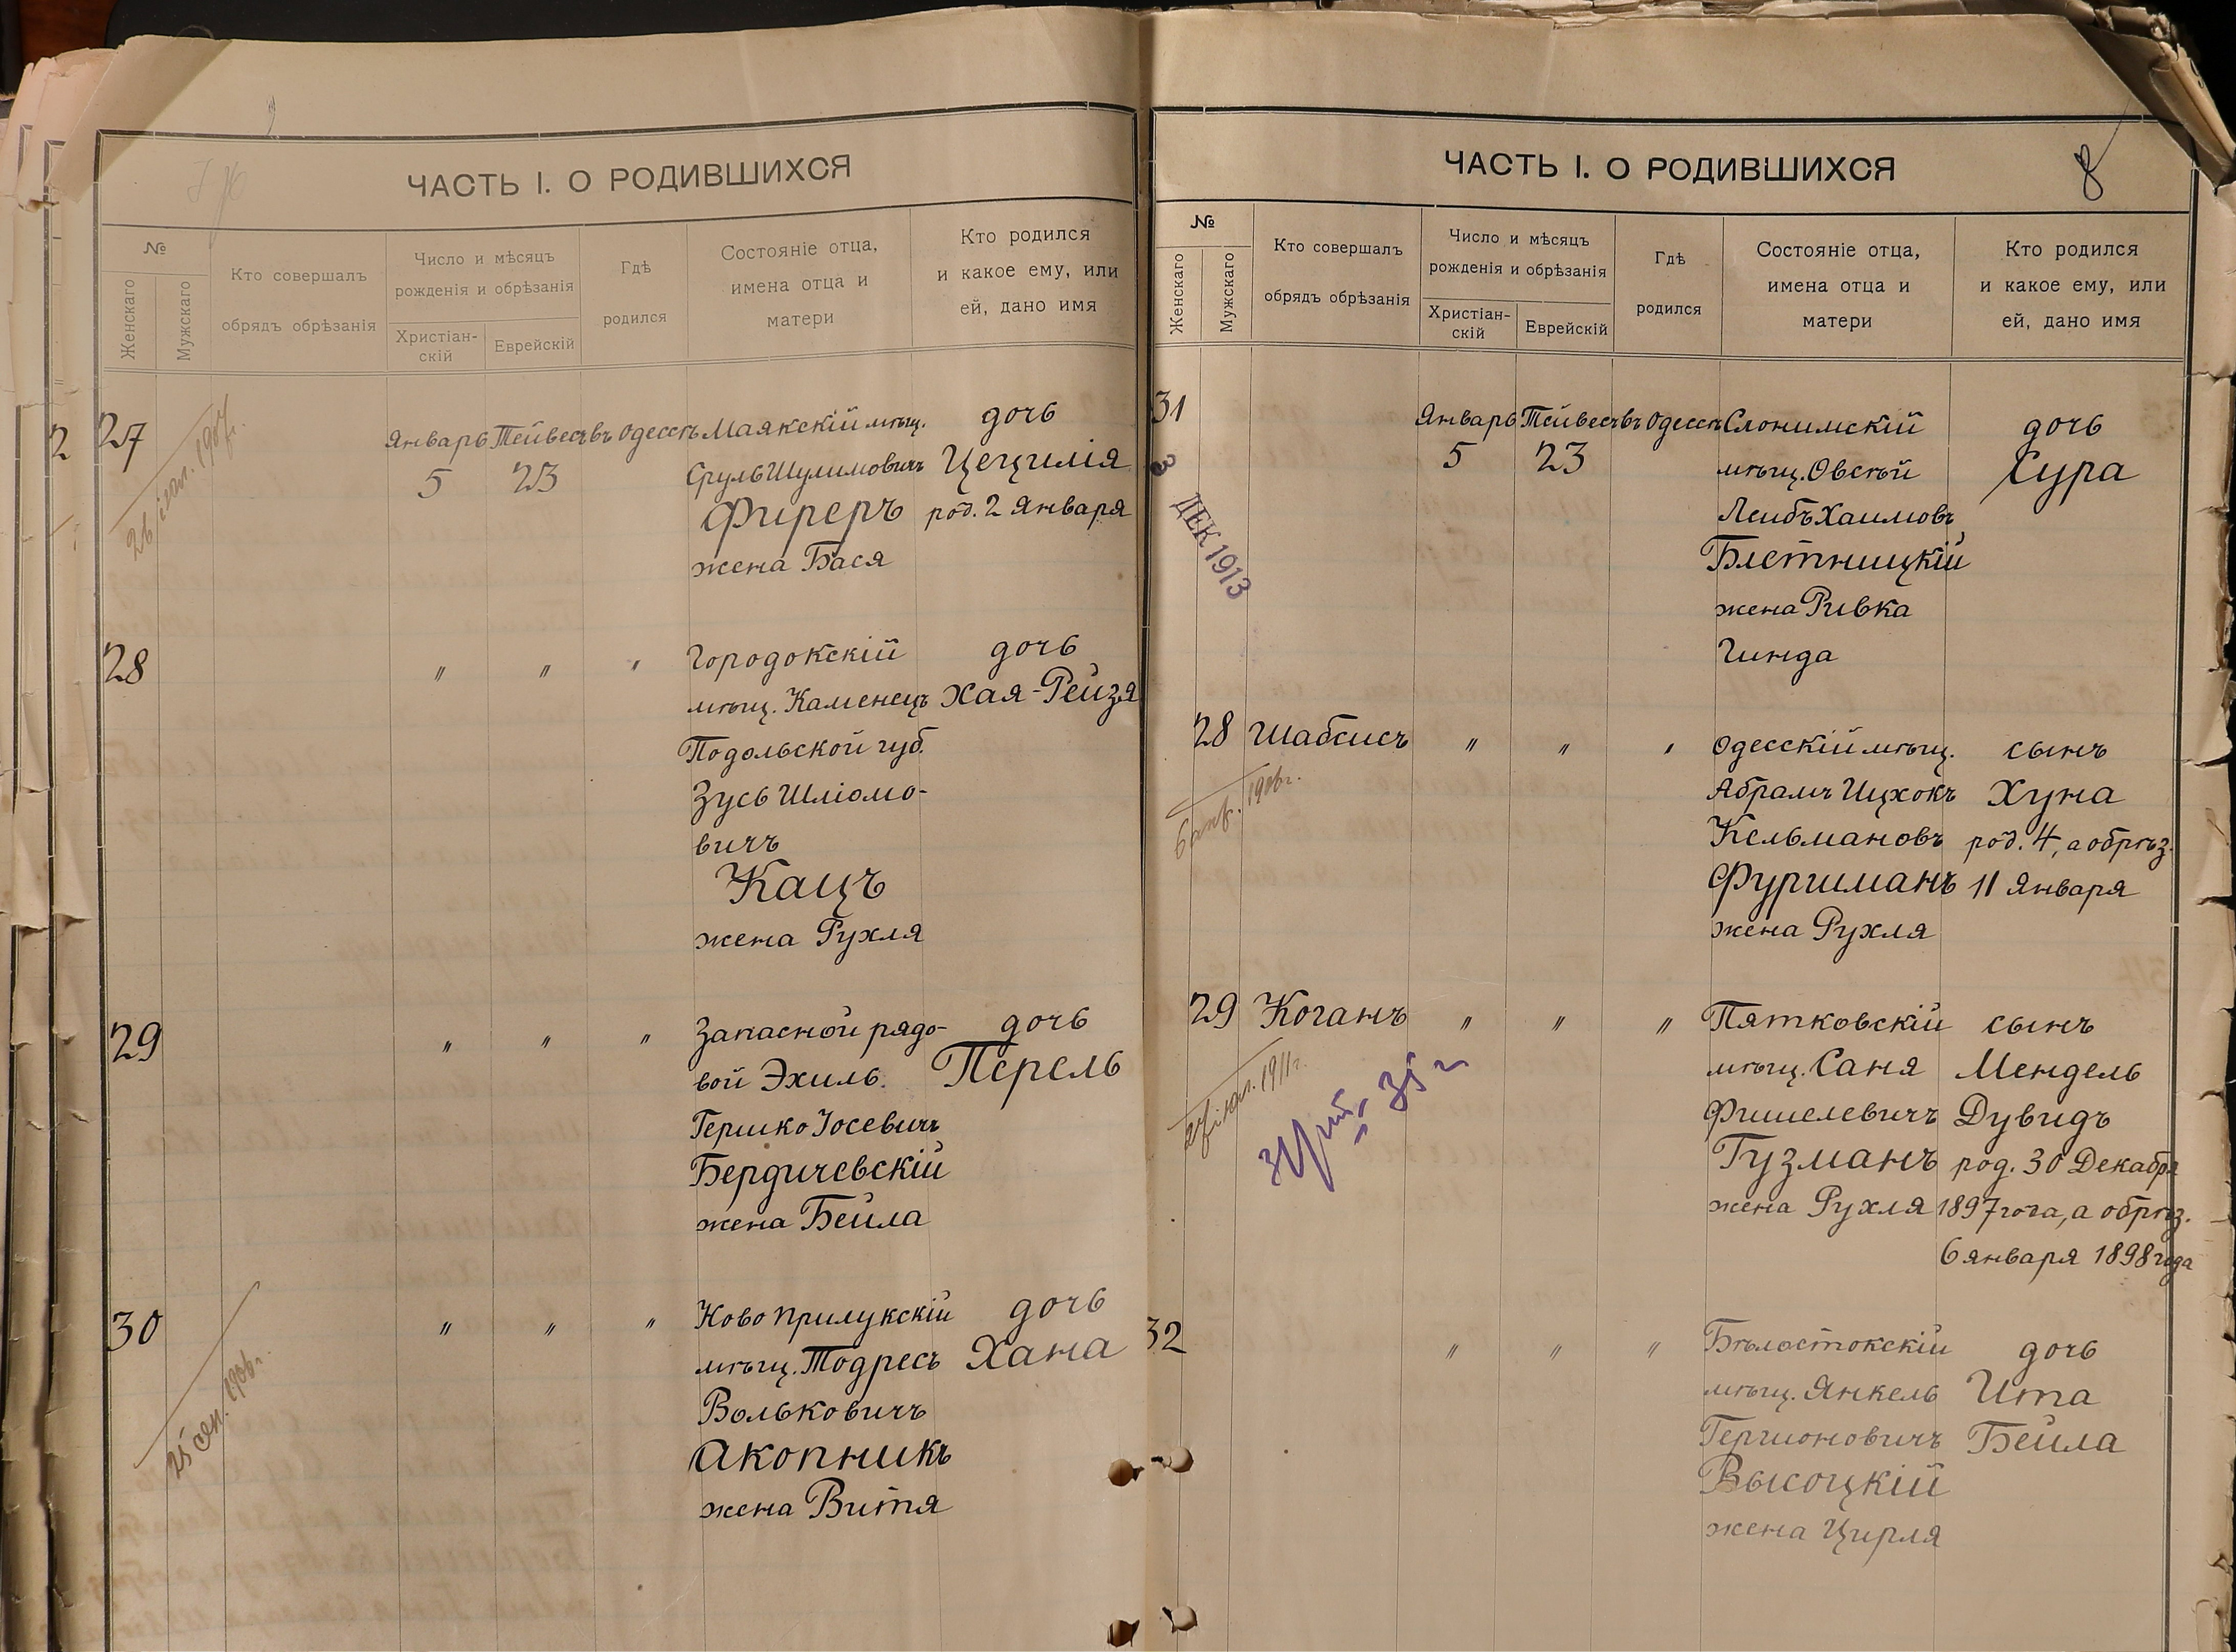 ЧАСТЬ I. О РОДИВШИХСЯ
№
Женскаго
Мужскаго
Кто совершалъ
обрядъ обрѣзанія
Число и мѣсяцъ
рожденія и обрѣзанія
Христіан-
скій
Еврейскій
Гдѣ
родился
Состояніе отца,
имена отца и
матери
Кто родился
и какое ему, или
ей, дано имя
27
Январь Тейвесъ въ Одессѣ Маякскій мѣщ. дочь
5 23 Сруль Шулимовичъ Цецилія
Фиреръ род. 2 Января
жена Бася
28 " " " Городокскій дочь
мѣщ. Каменецъ Хая-Рейзя
Подольской губ.
Зусь Шліомо-
вичъ
Кацъ
жена Рухля
29 " " " Запасной рядо- дочь
вой Эхиль. Перель
Гершко Іосевичъ
Бердичевскій
жена Бейла
30 " " " Ново Прилукскій дочь
мѣщ. Тодресъ Хана
Вольковичъ
Акопникъ
жена Витя
25 сен. 1906 г.
ЧАСТЬ I. О РОДИВШИХСЯ
8
№
Женскаго
Мужскаго
Кто совершалъ
обрядъ обрѣзанія
Число и мѣсяцъ
рожденія и обрѣзанія
Христіан-
скій
Еврейскій
Гдѣ
родился
Состояніе отца,
имена отца и
матери
Кто родился
и какое ему, или
ей, дано имя
31
Январь Тейвесъ въ Одессѣ Слонимскій дочь
5 23 мѣщ. Овсѣй Сура
Лейбъ Хаимовъ
Блетницкій
жена Ривка
Гинда
3 ДЕК 1913
28 Шабсисъ " " " Одесскій мѣщ. сынъ
Абрамъ Ицхокъ Хуна
Кельмановъ род. 4, а обрѣз.
Фургманъ 11 Января
жена Рухля
29 Коганъ " " " Пятковскій сынъ
мѣщ. Саня Мендель
Фишелевичъ Дувидъ
Гузманъ род. 30 Декабря
жена Рухля 1897 года, а обрѣз.
6 января 1898 года
32 " " " Бѣлостокскій дочь
мѣщ. Янкель Ита
Гершоновичъ Бейла
Высоцкій
жена Цирля